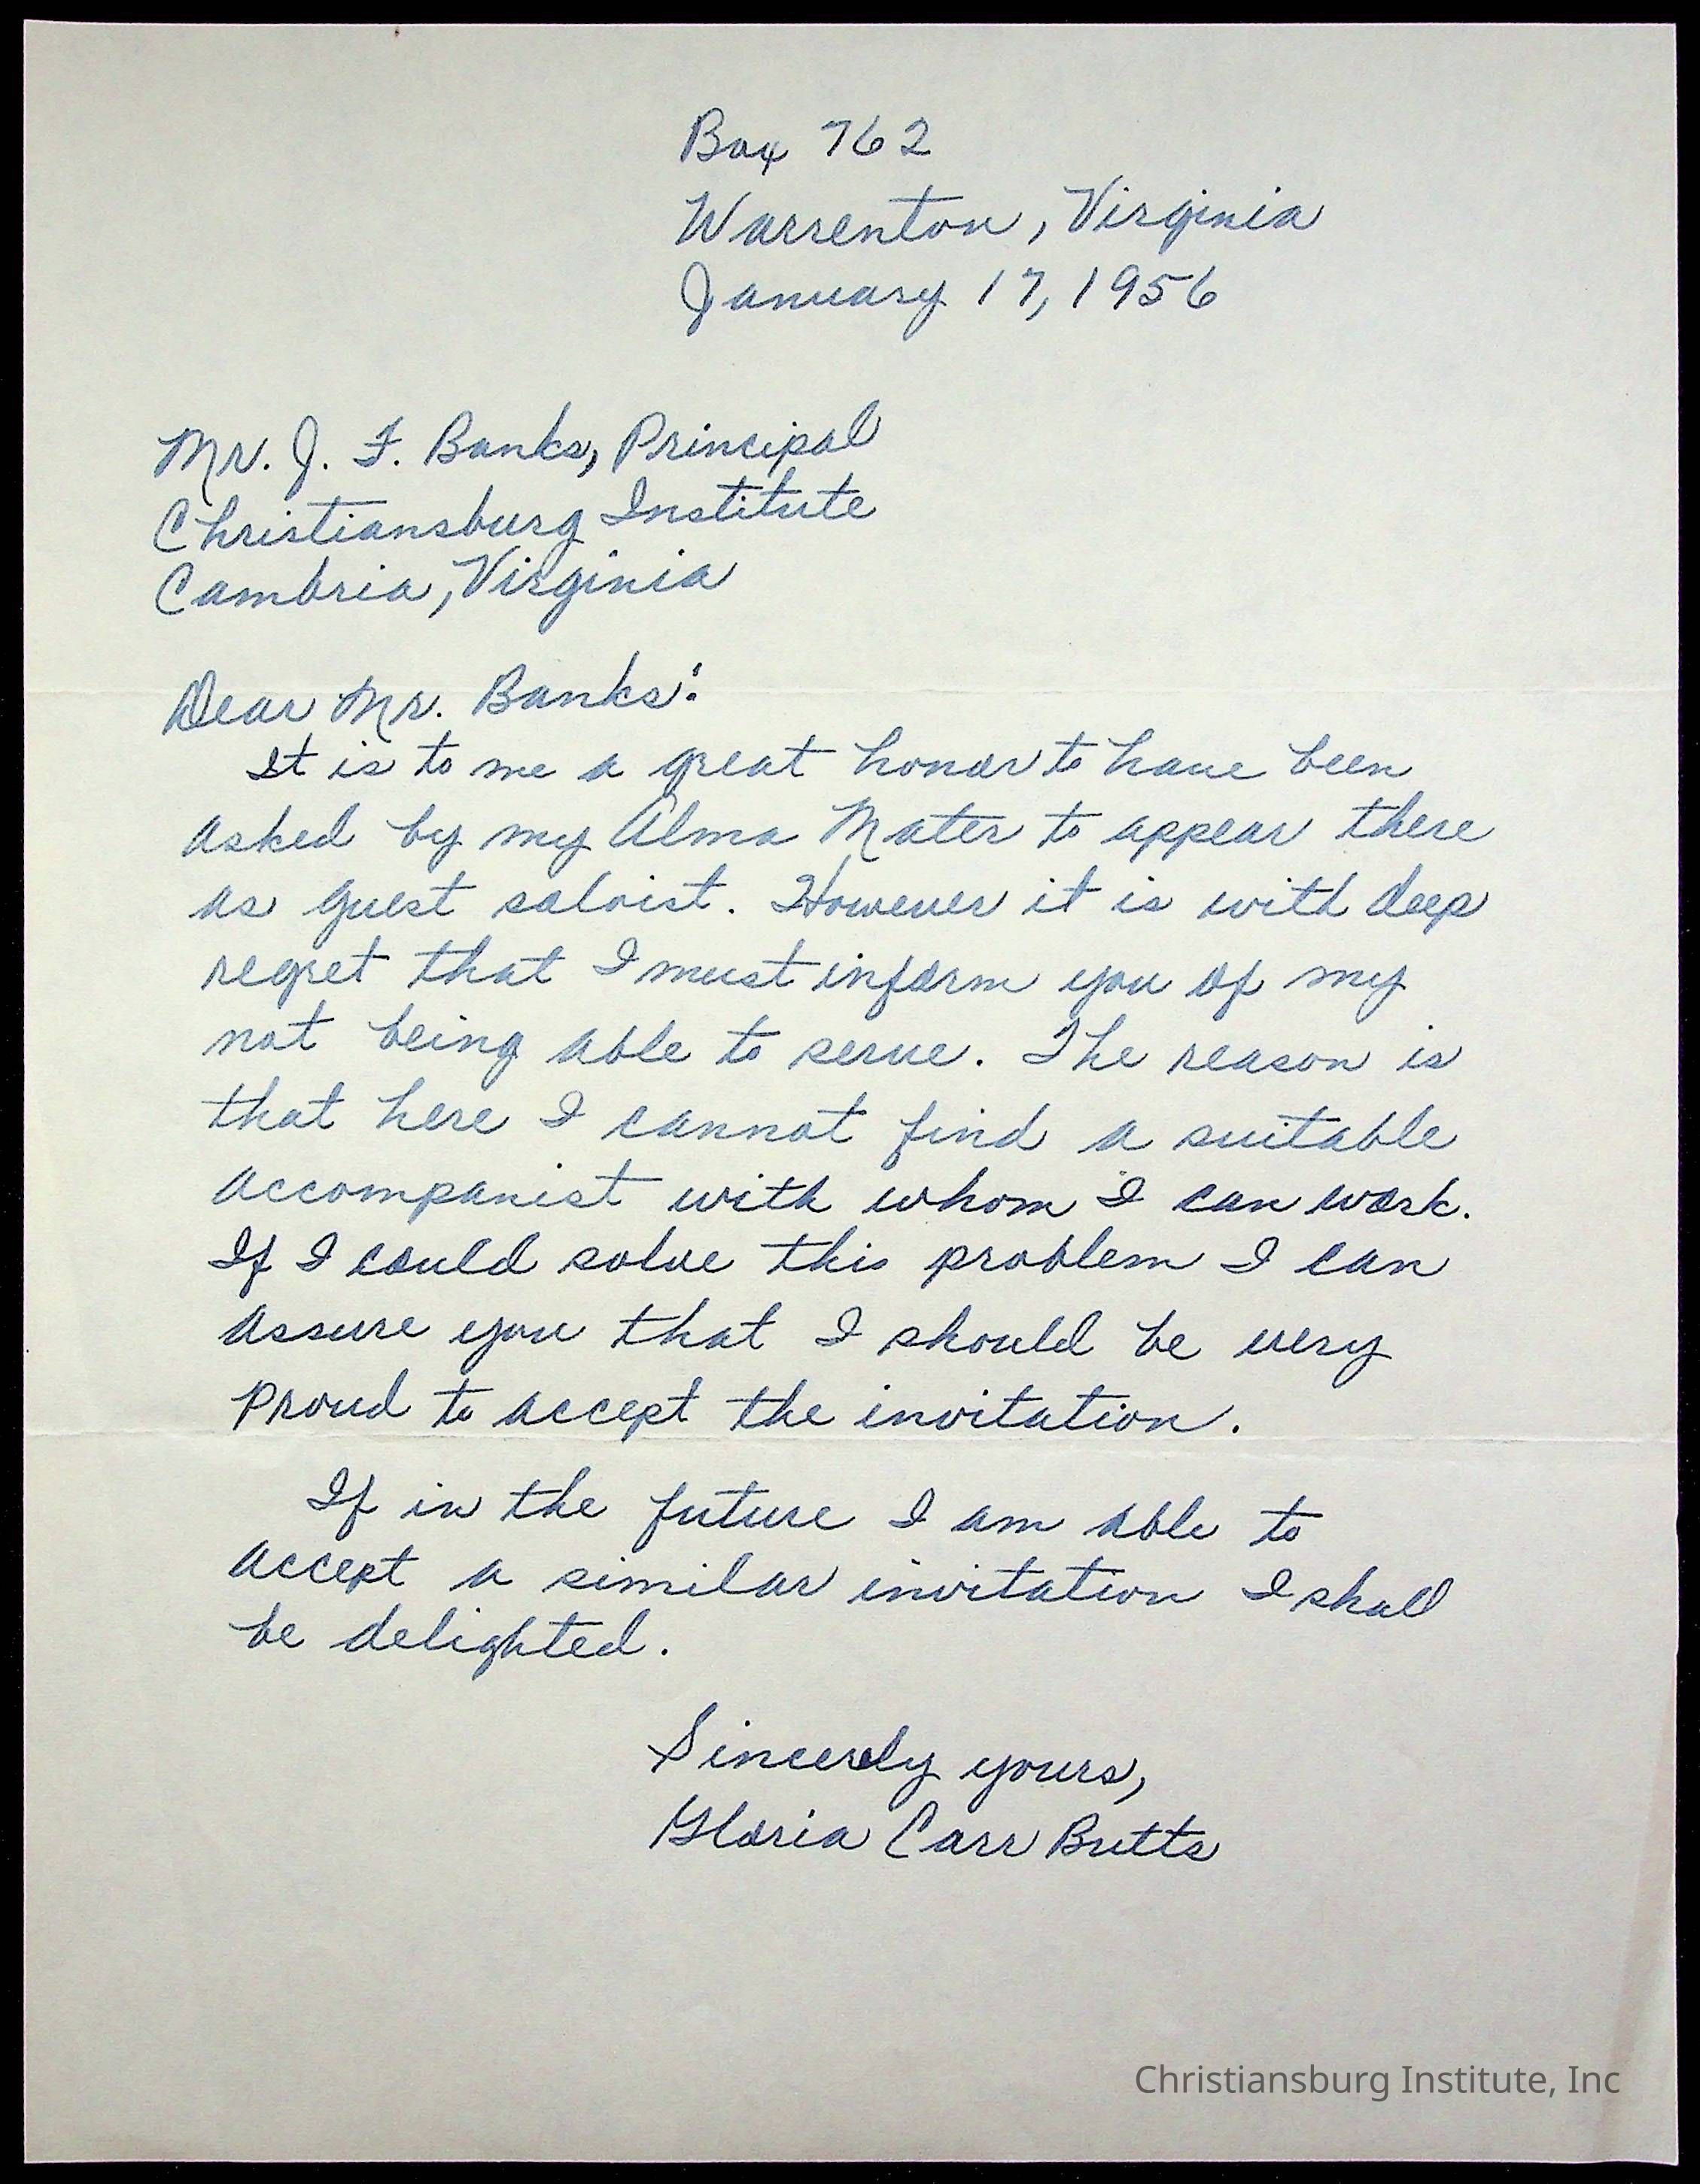 Box 762
Warrenton, Virginia
January 17, 1956
Mr. J. F. Banks, Principal
Christiansburg Institute
Cambria, Virginia
Dear Mr. Banks:
It is to me a great honor to have been
asked by my Alma Mater to appear there
as guest soloist. However it is with deep
regret that I must inform you of my
not being able to serve. The reason is
that here I cannot find a suitable
accompanist with whom I can work.
If I could solve this problem I can
assure you that I should be very
proud to accept the invitation.
If in the future I am able to
accept a similar invitation I shall
be delighted.
Sincerely yours,
Gloria Carr Butts
Christiansburg Institute, Inc